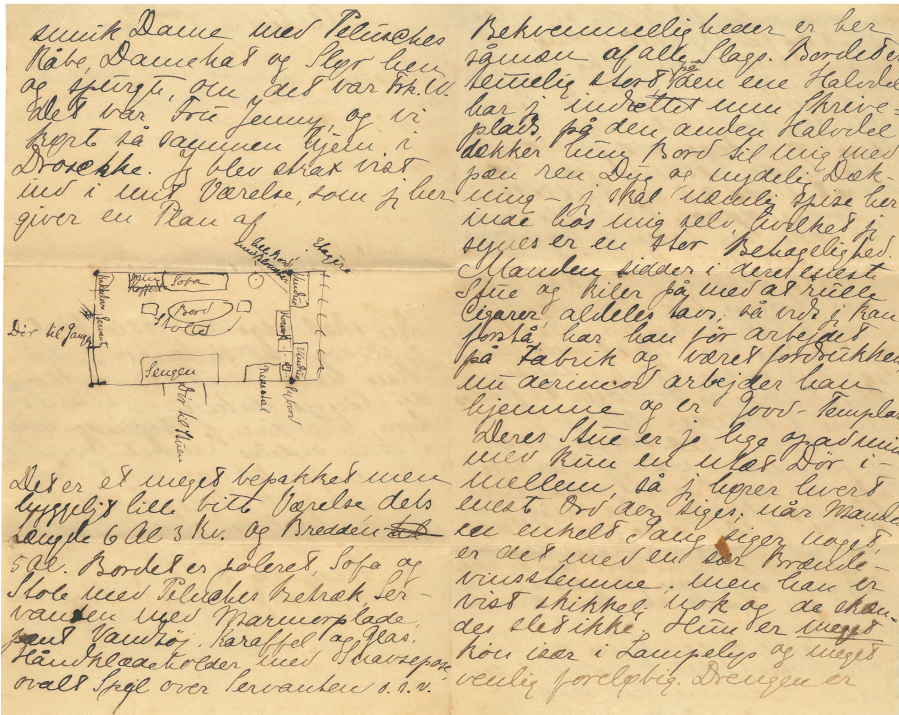 smuk Dame med Pelusches
Kåbe, Damehat og Slør hen
og spurgte, om det var Frk. W.
Det var Fru Jenny, og vi
kørte så sammen hjem i
Droschke. Jeg blev strax vist
ind i mit Værelse, som jeg her
giver en Plan af
Etagère
Sofa
Bord
Stole
Vindue
Vindue
Dør til Gangen
Sengen
Dør til Stuen
Piedestal
Sybord
Det er et meget bepakket men
hyggeligt lille bitte Værelse dets
Længde 6 Al 3 Kv. og Bredden
5 Al. Bordet er poleret, Sofa og
Stole med Pelusches Betræk, Ser-
vanten med Marmorplade,
pænt Vandtøj, Karaffel og Glas.
Håndklædeholder med Snavsepose,
ovalt Spejl over Servanten o.s.v.
Bekvemmeligheder er her
såmæn af alle Slags. Bordet er
temmelig stort, på den ene Halvdel
har jeg indrettet min Skrive-
plads, på den anden Halvdel
dækker hun Bord til mig med
pæn ren Dug og nydelig Dæk-
ning – jeg skal nemlig spise her
inde hos mig selv, hvilket jeg
synes er en stor Behagelighed.
Manden sidder i deres
Stue og kiler på med at rulle
Cigarer, aldeles tavs, så vidt jeg kan
forstå, har han før arbejdet
på Fabrik og været fordrukken,
nu derimod arbejder han
hjemme og er Good-Templar
Deres Stue er jo lige op ad min
med kun en utæt Dør i-
mellem, så jeg hører hvert
enest Ord der siges; når Manden
en enkelt Gang siger noget,
er det med en sær Brænde-
vinsstemme, men han er
vist skikkelig nok og de skæn-
des slet ikke. Hun er meget
køn især i Lampelys og meget
venlig foreløbig. Drengen er